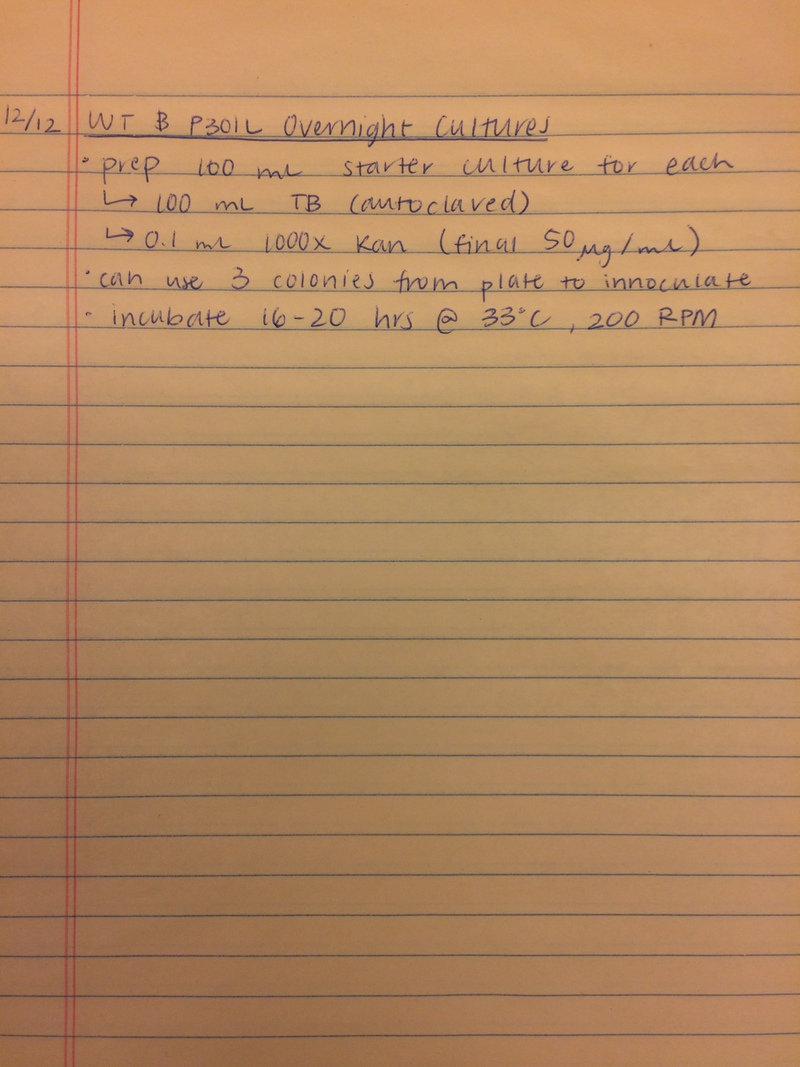 12/12 WT & P301L Overnight Cultures
• prep 100 mL starter culture for each
↳ 100 mL TB (autoclaved)
↳ 0.1 mL 1000x Kan (final 50 µg/mL)
• can use 3 colonies from plate to innoculate
• incubate 16-20 hrs @ 33°C, 200 RPM